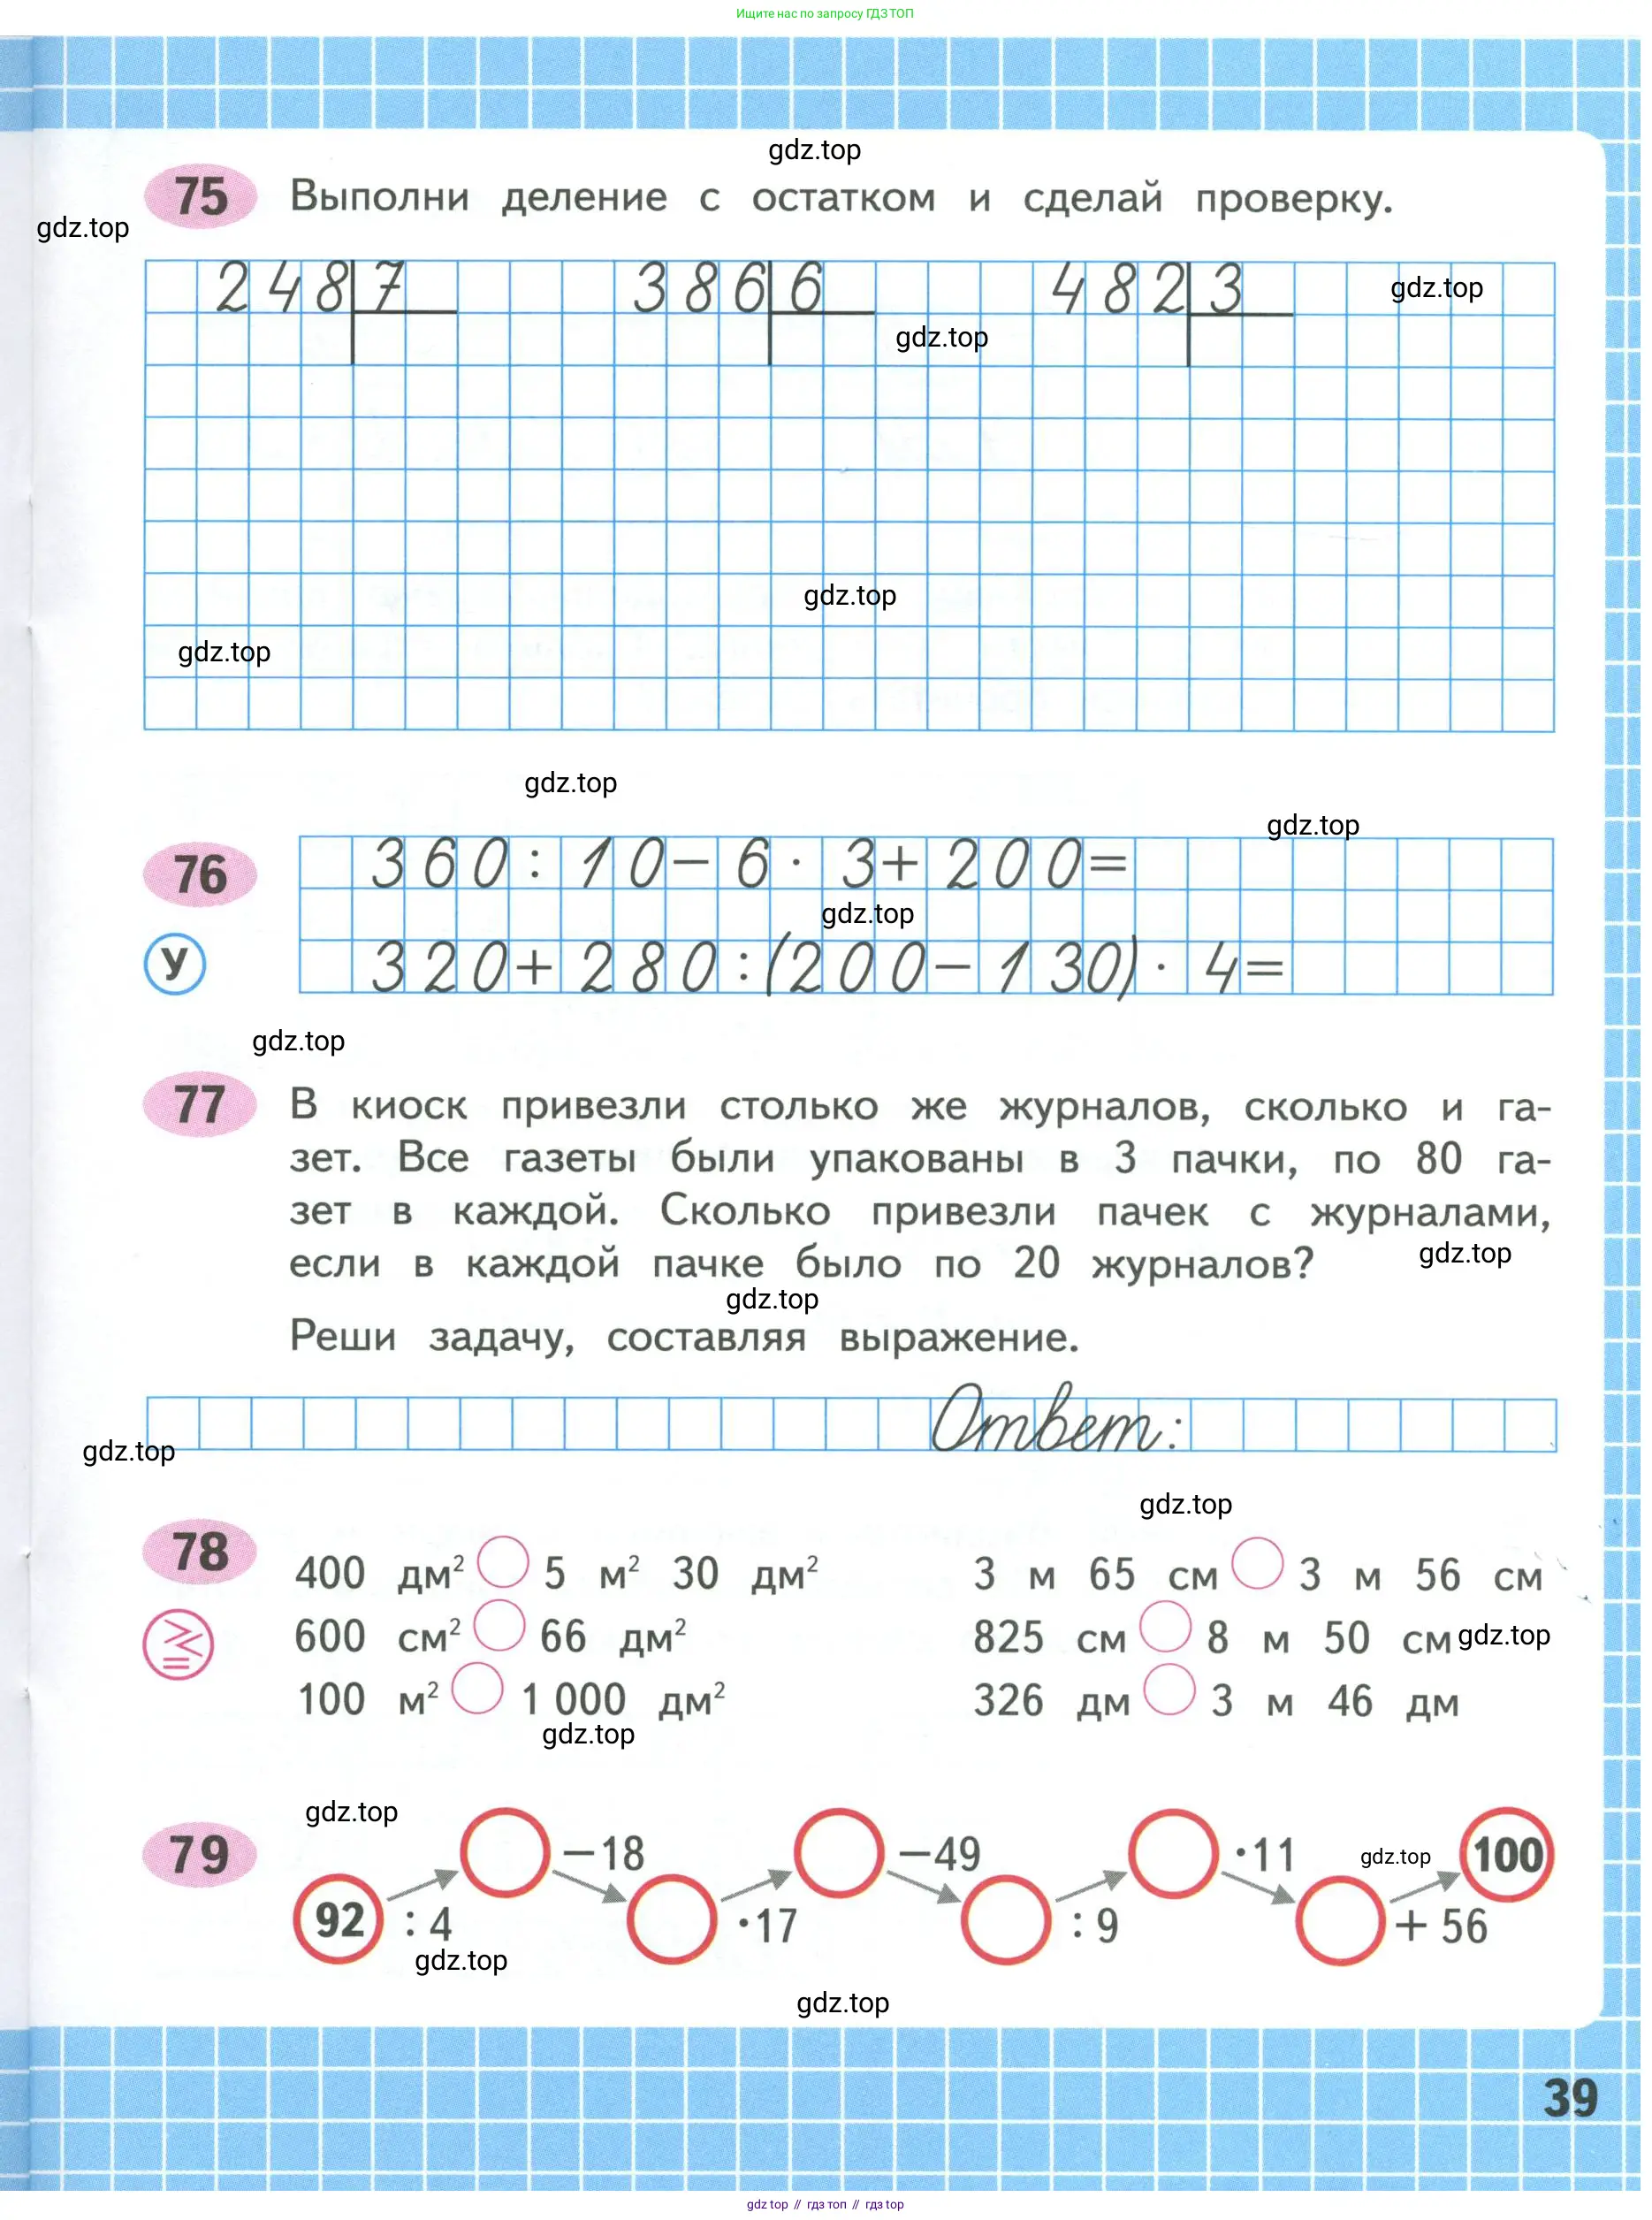 Ищите нас по запросу ГДЗ ТОП
gdz.top
75 Выполни деление с остатком и сделай проверку.
gdz.top
248 7 386 6 482 3
gdz.top
gdz.top
gdz.top
gdz.top
gdz.top
gdz.top
76 360 : 10 − 6 · 3 + 200 =
gdz.top
У 320 + 280 : (200 − 130) · 4 =
gdz.top
77 В киоск привезли столько же журналов, сколько и га-
зет. Все газеты были упакованы в 3 пачки, по 80 га-
зет в каждой. Сколько привезли пачек с журналами,
если в каждой пачке было по 20 журналов?
gdz.top
gdz.top
Реши задачу, составляя выражение.
Ответ:
gdz.top
gdz.top
78
400 дм² 5 м² 30 дм² 3 м 65 см 3 м 56 см
600 см² 66 дм² 825 см 8 м 50 см
gdz.top
100 м² 1 000 дм² 326 дм 3 м 46 дм
gdz.top
gdz.top
79 −18 −49 ·11 100
gdz.top
92 : 4 ·17 : 9 + 56
gdz.top
gdz.top
39
gdz top // гдз топ // гдз top